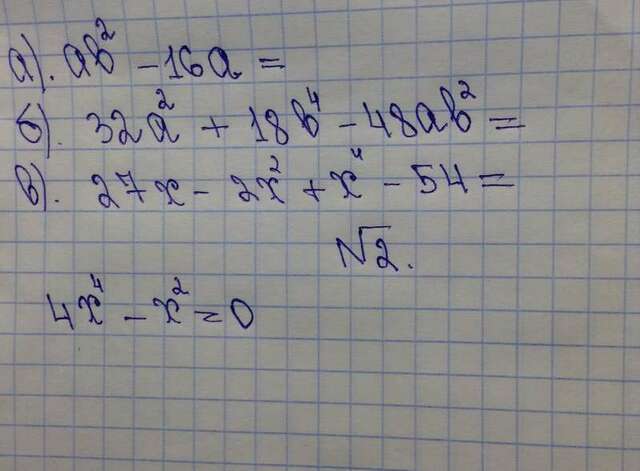 а). ab² - 16a =
б). 32a² + 18b⁴ - 48ab² =
в). 27x - 2x² + x⁴ - 54 =
√2.
4x⁴ - x² = 0